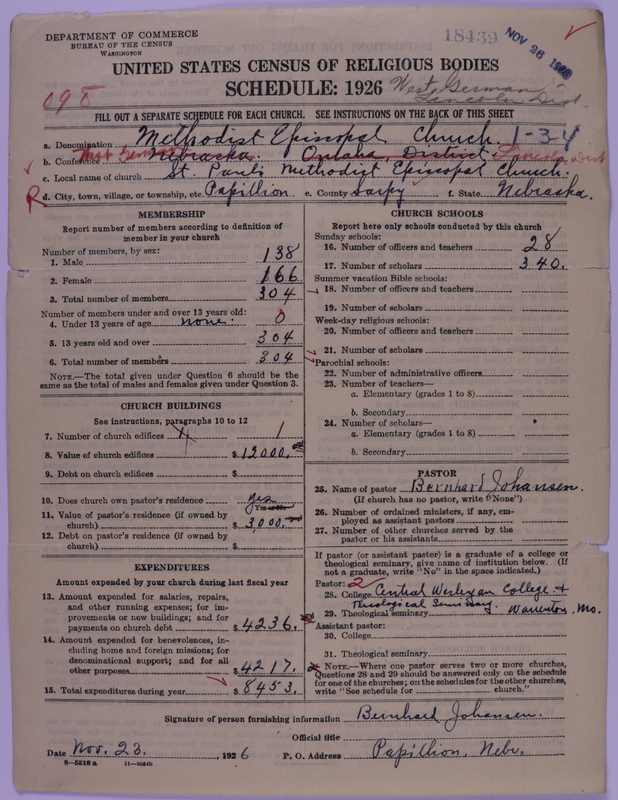 DEPARTMENT OF COMMERCE
BUREAU OF THE CENSUS
WASHINGTON
18439
NOV 26 1926
UNITED STATES CENSUS OF RELIGIOUS BODIES
SCHEDULE: 1926
West German
Lincoln Dist.
098
FILL OUT A SEPARATE SCHEDULE FOR EACH CHURCH. SEE INSTRUCTIONS ON THE BACK OF THIS SHEET
a. Denomination Methodist Episcopal Church. 1-34
b. Conference West German Nebraska Omaha District Lincoln Dist
c. Local name of church St. Paul's Methodist Episcopal Church.
R d. City, town, village, or township, etc. Papillion. e. County Sarpy f. State Nebraska.
MEMBERSHIP
Report number of members according to definition of
member in your church
Number of members, by sex:
1. Male 138
2. Female 166
3. Total number of members 304
Number of members under and over 13 years old:
4. Under 13 years of age none. 0
5. 13 years old and over 304
6. Total number of members 304
NOTE.—The total given under Question 6 should be the
same as the total of males and females given under Question 3.
CHURCH BUILDINGS
See instructions, paragraphs 10 to 12
7. Number of church edifices 1 1
8. Value of church edifices $12000.
9. Debt on church edifices $
10. Does church own pastor's residence yes
Yes or No
11. Value of pastor's residence (if owned by
church) $3,000.
12. Debt on pastor's residence (if owned by
church) $
EXPENDITURES
Amount expended by your church during last fiscal year
13. Amount expended for salaries, repairs,
and other running expenses; for im-
provements or new buildings; and for
payments on church debt $4236.
14. Amount expended for benevolences, in-
cluding home and foreign missions; for
denominational support; and for all
other purposes $4217.
15. Total expenditures during year $8453.
CHURCH SCHOOLS
Report here only schools conducted by this church
Sunday schools:
16. Number of officers and teachers 28
17. Number of scholars 340.
Summer vacation Bible schools:
18. Number of officers and teachers
19. Number of scholars
Week-day religious schools:
20. Number of officers and teachers
21. Number of scholars
Parochial schools:
22. Number of administrative officers
23. Number of teachers—
a. Elementary (grades 1 to 8)
b. Secondary
24. Number of scholars—
a. Elementary (grades 1 to 8)
b. Secondary
PASTOR
25. Name of pastor Bernhard Johansen.
(If church has no pastor, write "None")
26. Number of ordained ministers, if any, em-
ployed as assistant pastors
27. Number of other churches served by the
pastor or his assistants
If pastor (or assistant pastor) is a graduate of a college or
theological seminary, give name of institution below. (If
not a graduate, write "No" in the space indicated.)
Pastor: 2
28. College Central Wesleyan College &
Theological Seminary.
29. Theological seminary Warrenton, Mo.
Assistant pastor:
30. College
31. Theological seminary
NOTE.—Where one pastor serves two or more churches,
Questions 28 and 29 should be answered only on the schedule
for one of the churches; on the schedules for the other churches,
write "See schedule for ______ church."
Signature of person furnishing information Bernhard Johansen.
Official title
Date Nov. 23. , 1926 P. O. Address Papillion, Nebr.
8—5518 a